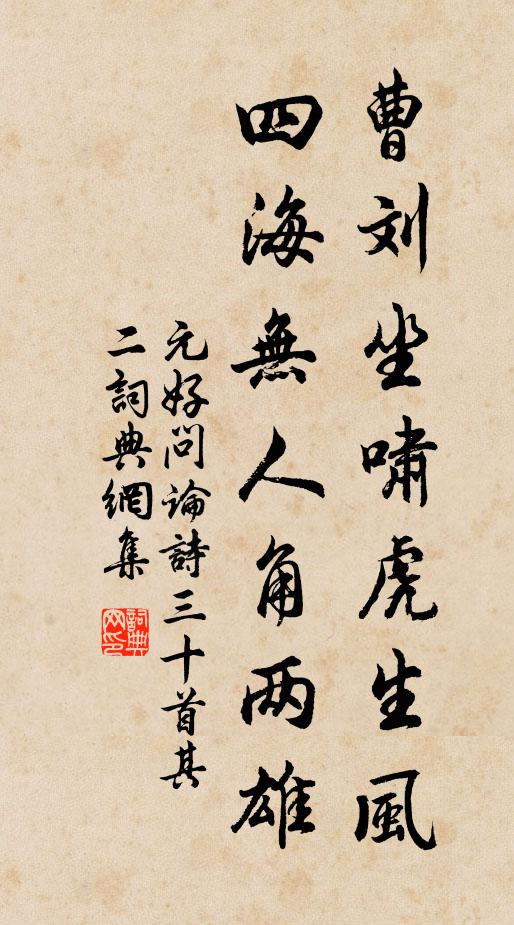 曹刘坐啸虎生風
四海無人角两雄
元好问论詩三十首其
二詞典網集
詞典网印